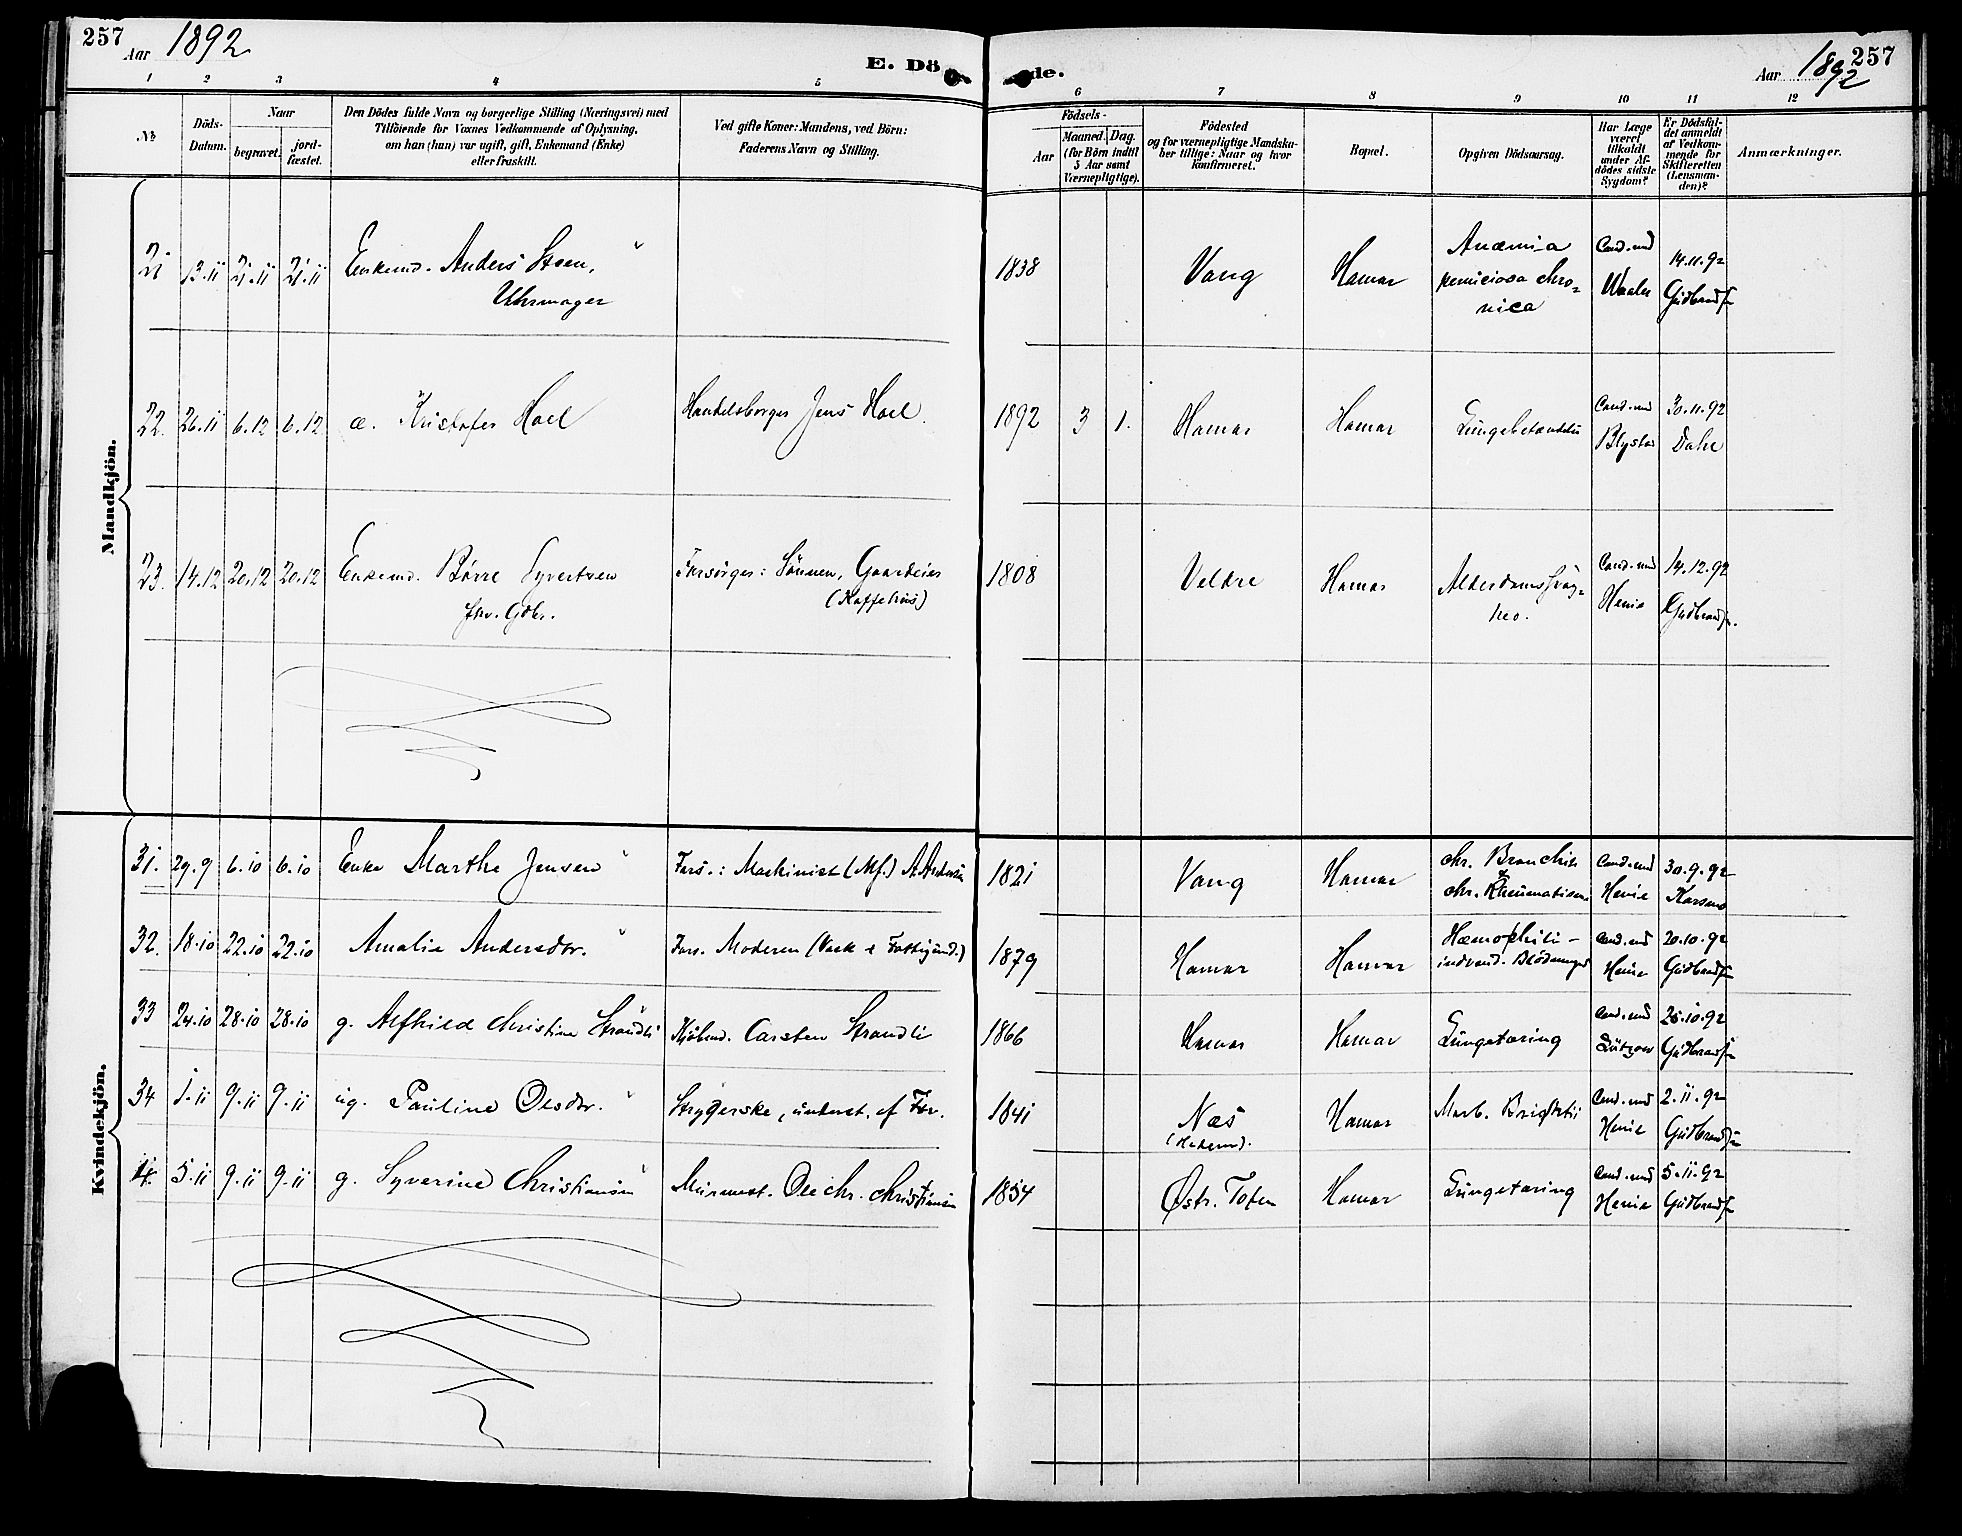 257 Aar 1892 E. Dö de. Aar 1892 257
1 2 3 4 5 6 7 8 9 10 11 12
No.
Döds-
Datum.
Naar
begravet.
jord-
fæstet.
Den Dödes fulde Navn og borgerlige Stilling (Næringsvei) med
Tilföiende for Voxnes Vedkommende af Oplysning,
om han (hun) var ugift, gift, Enkemand (Enke)
eller fraskilt.
Ved gifte Koner: Mandens, ved Börn:
Faderens Navn og Stilling.
Födsels-
Aar
Maaned. Dag.
(for Börn indtil
5 Aar samt
Værnepligtige).
Födested
og for værnepligtige Mandska-
ber tillige: Naar og hvor
konfirmeret.
Bopæl.
Opgiven Dödsaarsag.
Har Læge
været
tilkaldt
under Af-
dödes sidste
Sygdom?
Er Dödsfal-
det anmeldt
af Vedkom-
mende for
Skifteretten
(Lensman-
den)?
Anmærkninger.
Mandkjön.
21 13.11 21.11 21.11 Enkemd. Anders Steen,
Uhrmager
1838 Vang Hamar
Anæmia
perniciosa chro-
nica
Cand. med
Waaler
14.11.92
Gudbrands
22. 26.11 6.12 6.12 æ. Kristofer Hoel
Handelsborger Jens Hoel.
1892 3 1. Hamar Hamar Lungebetændelse
Cand. med
Blystad
30.11.92
Dahl
23. 14.12 20.12 20.12 Enkemd. Børre Syvertsen
fhv. Gdbr.
Forsörges: Sønnen, Gaardeier
(Kaffehus)
1808 Veldre Hamar
Alderdomssvag-
hed.
Cand. med
Henie
14.12.92
Gudbrands.
Kvindekjön.
31. 29.9 6.10 6.10 Enke Marthe Jensen
Fors.: Maskinist (Mf.) A. Andersen
1821 Vang Hamar
chr. Bronchit
&
chr. Rheumatisme
Cand. med
Henie
30.9.92
32. 18.10 22.10 22.10 Amalia Andersdtr.
Fors. Moderen (Vask &
1879 Hamar Hamar
Hæmophili-
indvend. Blödninger
Cand. med
Henie
20.10.92
Gudbrands
33 24.10 28.10 28.10 g. Alfhild Christine Strandli
Kjøbmd. Carsten Strandli
1866 Hamar Hamar Lungetæring
Cand. med
Lützow
25.10.92
Gudbrands
34 1.11 9.11 9.11 ug. Pauline Olsdtr.
Strygerske, underst. af For.
1841 Næs
(Hedem).
Hamar Morb. Brightii
Cand. med
Henie
2.11.92
Gudbrands
5.11 9.11 9.11 g. Syverine Christiansen
Murmest. Ole Chr. Christiansen
1854 Østr. Toten Hamar Lungetæring
Cand. med
Henie
5.11.92
Gudbrands